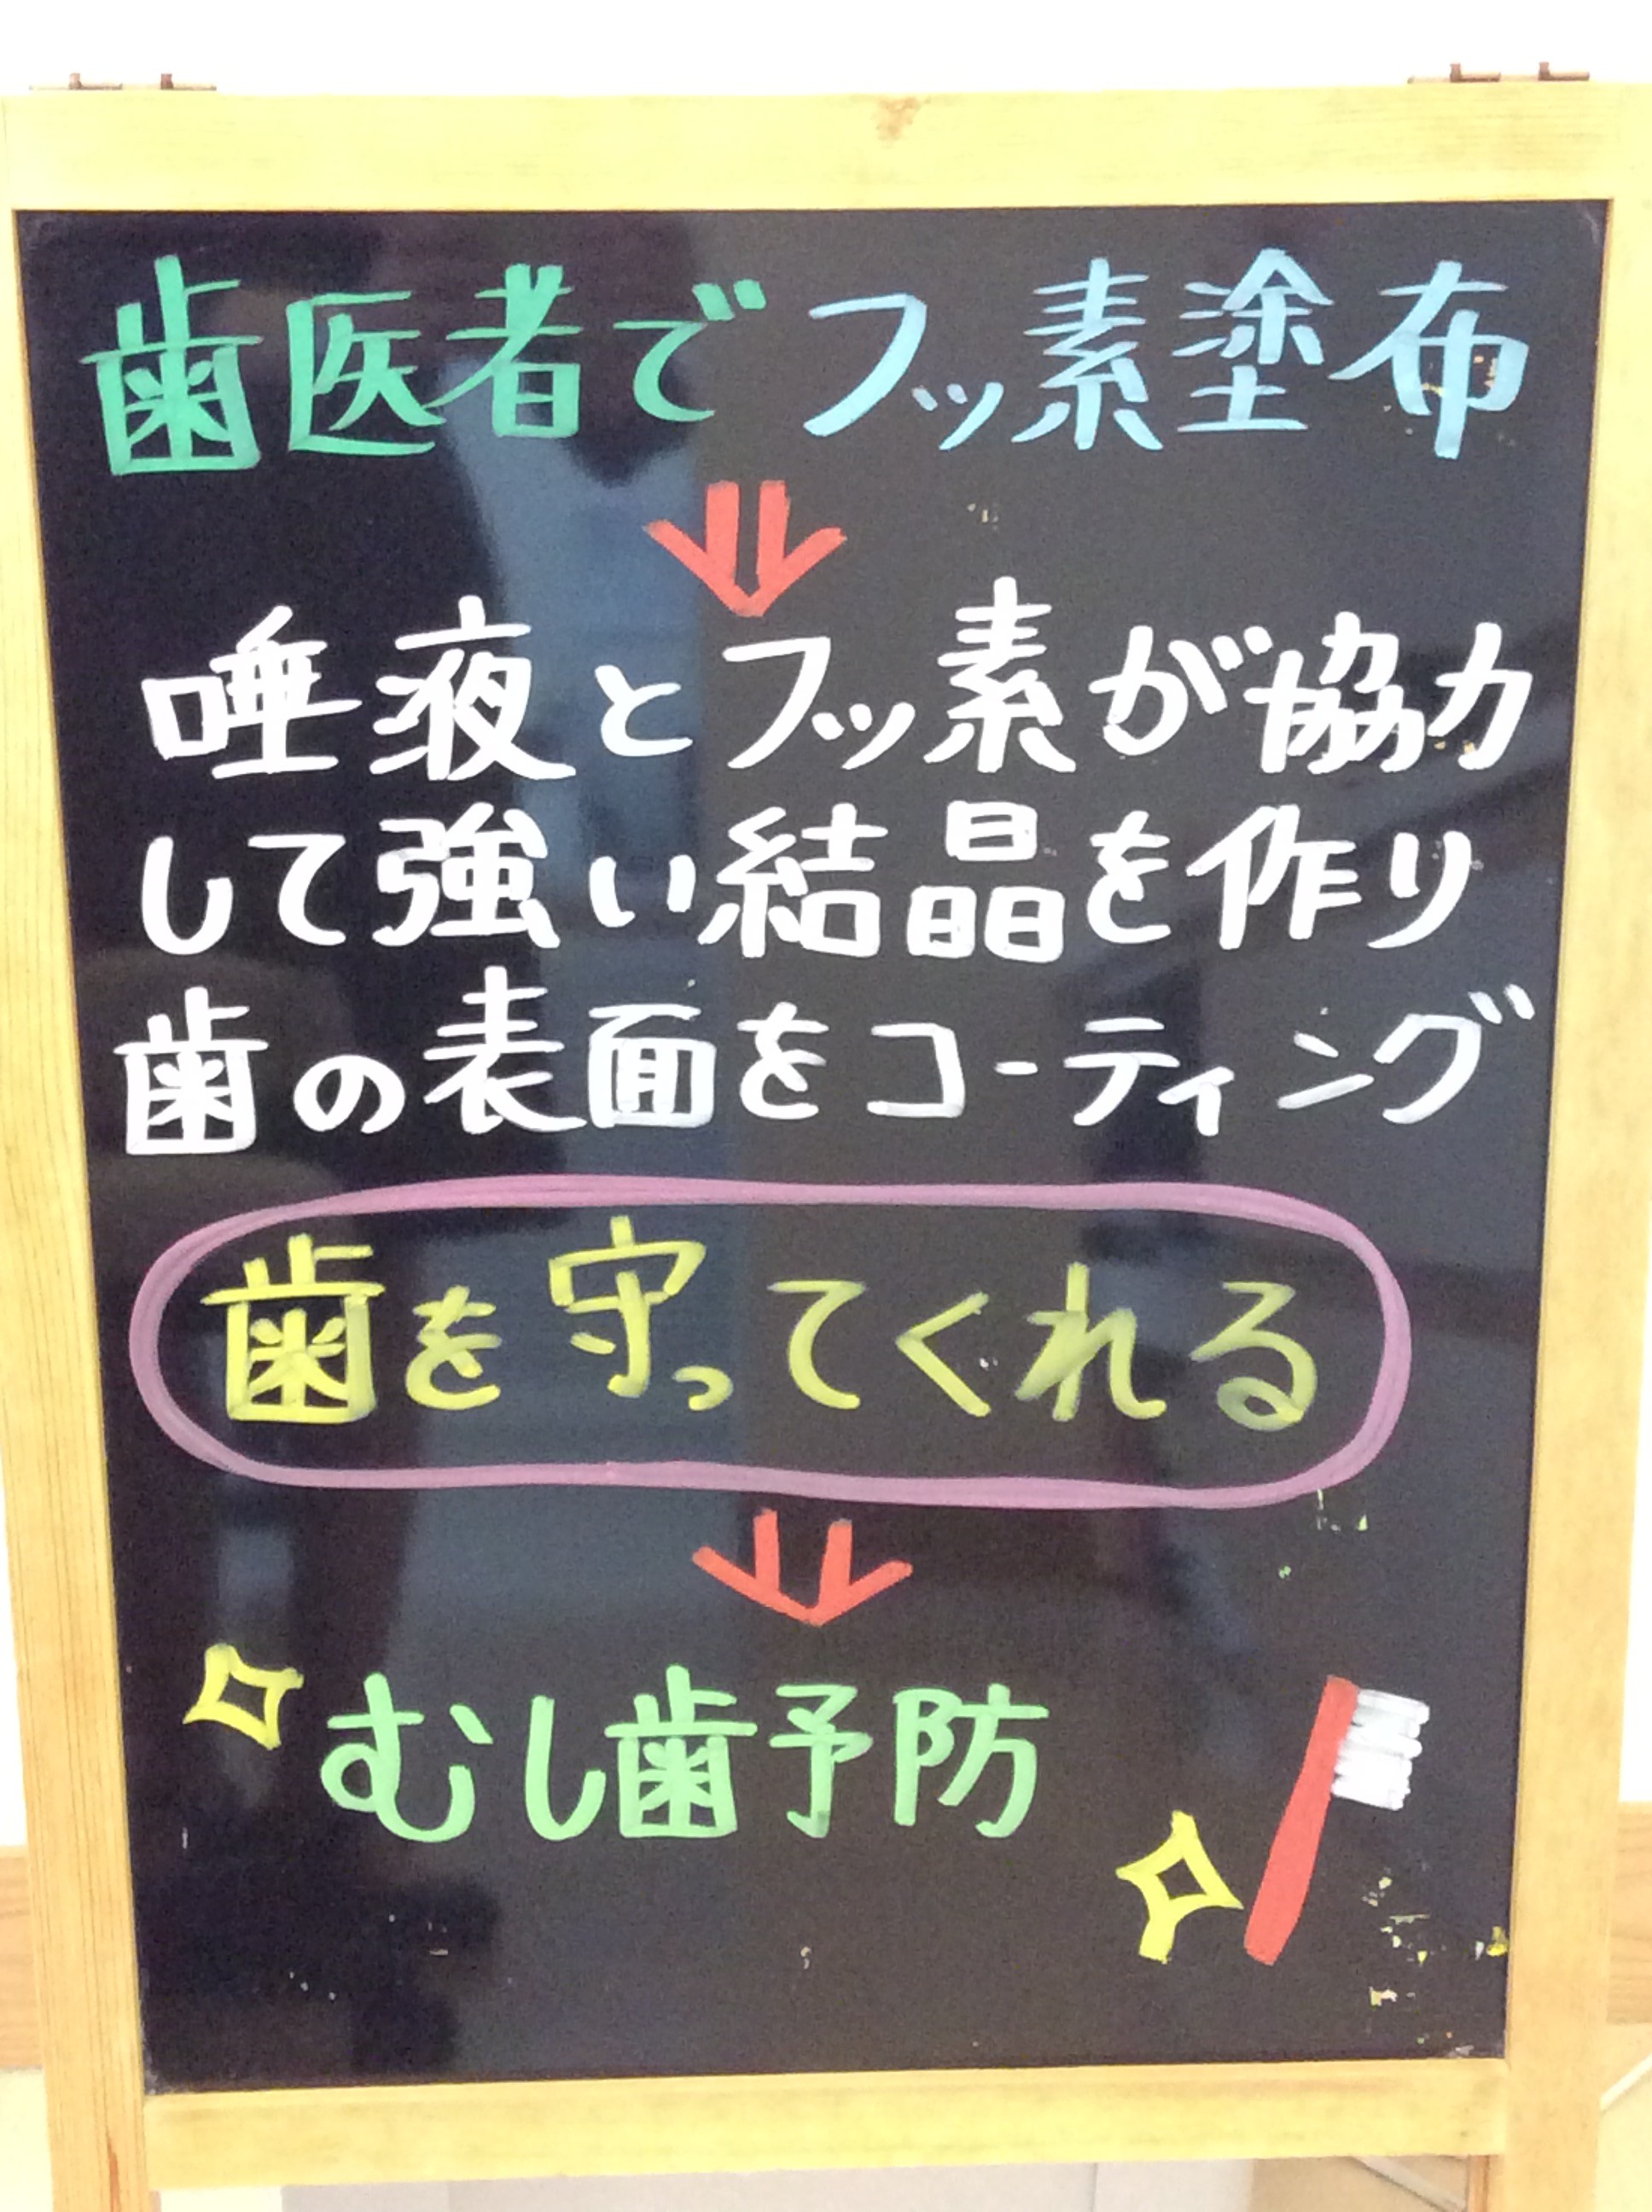 歯医者でフッ素塗布
唾液とフッ素が協力
して強い結晶を作り
歯の表面をコーティング
歯を守ってくれる
むし歯予防